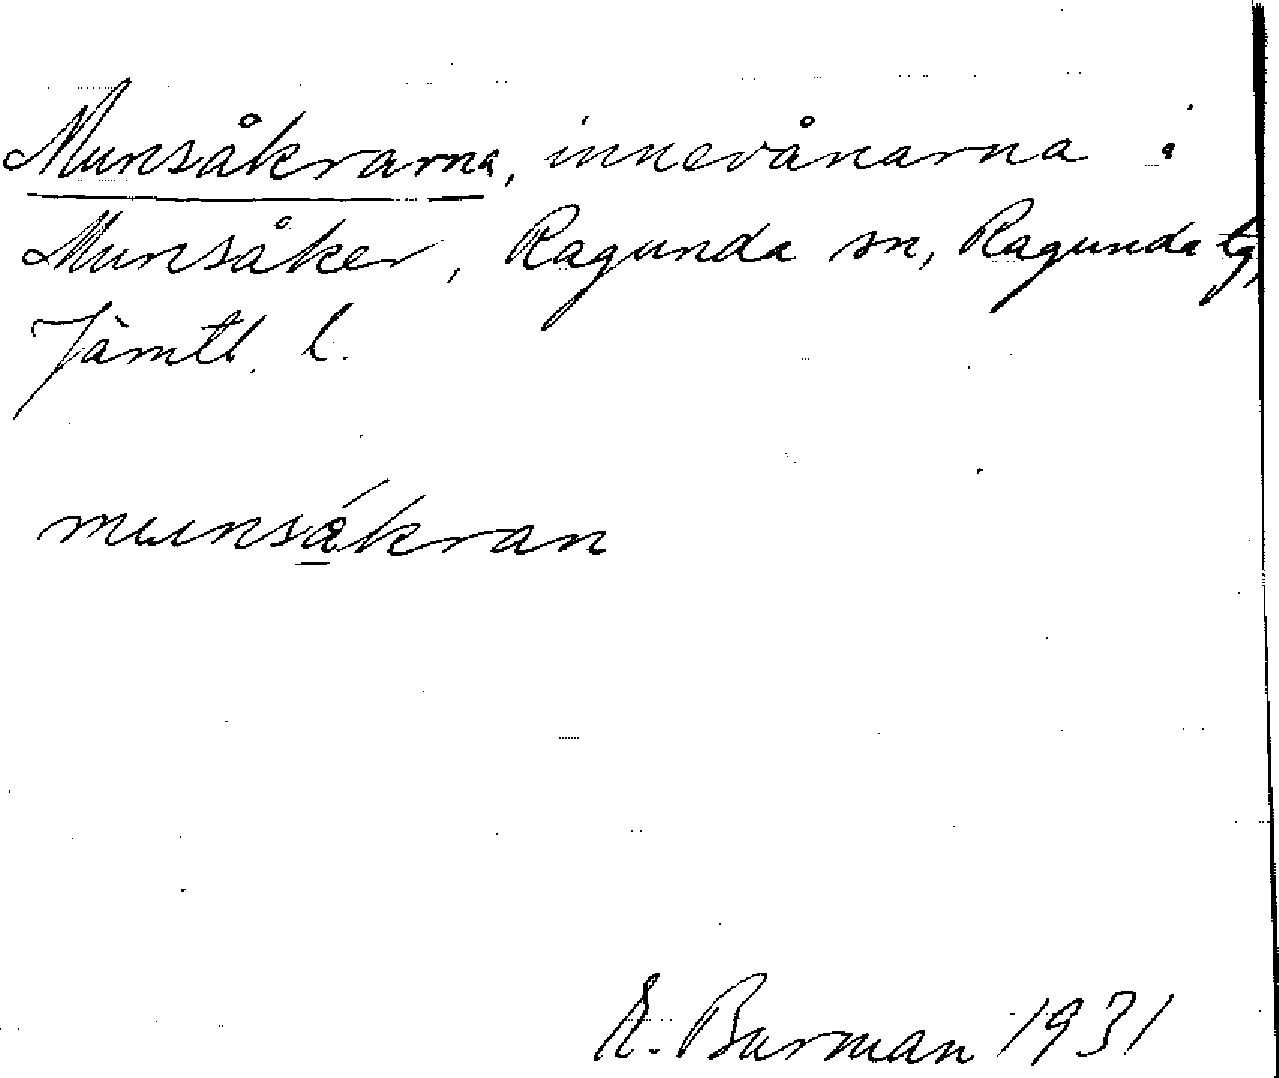 Munsåkrarna, innevånarna i
Munsåker, Ragunda sn, Ragunda tg,
Jämtl. l.
munsåkran
Burman 1931